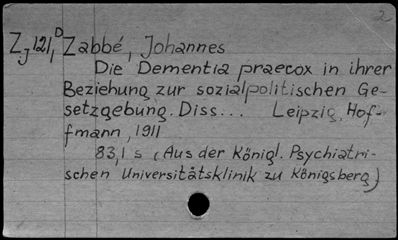 2
ZJ 121,D Zabbé, Johannes
Die Dementia praecox in ihrer
Beziehung zur sozialpolitischen Ge-
setzgebung. Diss... Leipzig, Hof-
fmann, 1911
83,1 s (Aus der Königl. Psychiatri-
schen Universitätsklinik zu Königsberg)